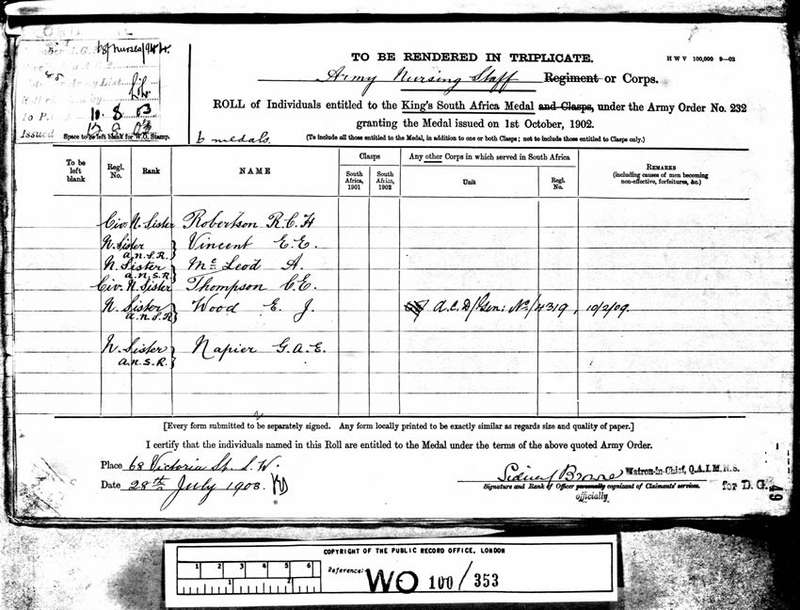 Nurses
TO BE RENDERED IN TRIPLICATE.
H W V 100,000 9—02
Army Nursing Staff Regiment or Corps.
ROLL of Individuals entitled to the King's South Africa Medal and Clasps, under the Army Order No. 232
granting the Medal issued on 1st October, 1902.
10. 8 03
Issued
Space to be left blank for W.O. Stamp.
6 medals.
(To include all those entitled to the Medal, in addition to one or both Clasps; not to include those entitled to Clasps only.)
To be left blank
Regl. No.
Rank
NAME
Clasps
South Africa, 1901
South Africa, 1902
Any other Corps in which served in South Africa
Unit
Regl. No.
REMARKS
(including causes of men becoming non-effective, forfeitures, &c.)
Civ. N. Sister Robertson R.C.H
N. Sister A.N.S.R. Vincent E.E.
N. Sister A.N.S.R. McLeod A.
Civ. N. Sister Thompson C.E.
N. Sister A.N.S.R. Wood E. J. No/4319, 10/2/09.
N. Sister A.N.S.R. Napier G.A.E.
[Every form submitted to be separately signed. Any form locally printed to be exactly similar as regards size and quality of paper.]
I certify that the individuals named in this Roll are entitled to the Medal under the terms of the above quoted Army Order.
Place 68 Victoria St. S.W.
Date 28th July 1903.
Sidney Browne Matron-in-Chief, Q.A.I.M.N.S.
Signature and Rank of Officer personally cognizant of Claimants' services.
officially
for D.G.
49
COPYRIGHT OF THE PUBLIC RECORD OFFICE, LONDON
1 2 3 4 5 6
1 2
Reference:
WO 100/353